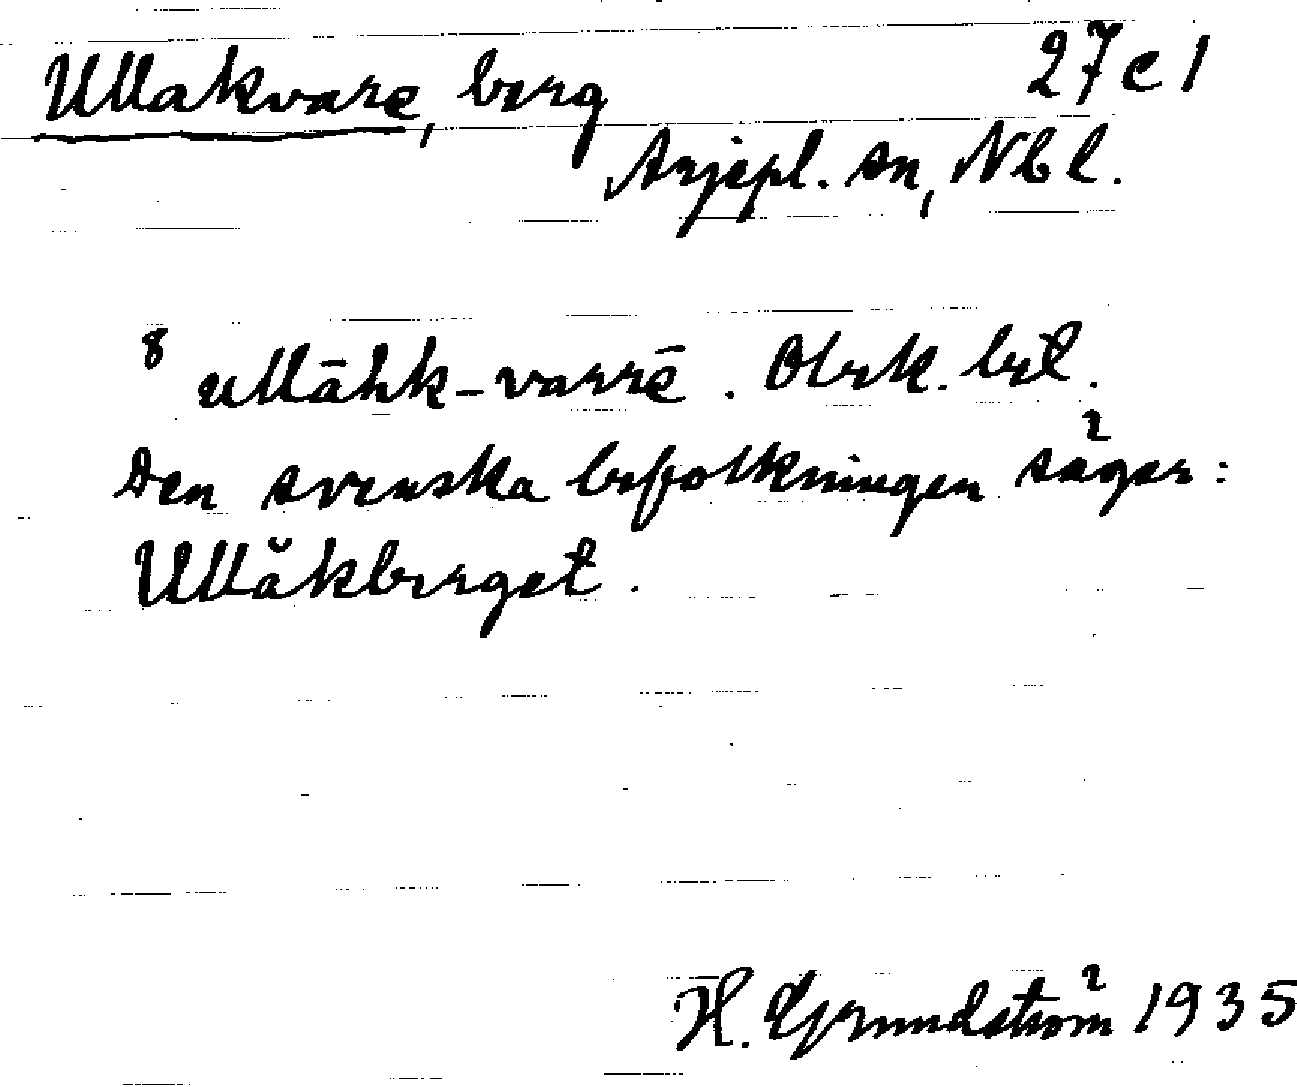 Ullakvare, berg 27c1
Arjepl. sn, Nbl.
8 ullāhk-varrē. Obrk. bet.
Den svenska befolkningen säger:
Ullåkberget.
H. Grundström 1935